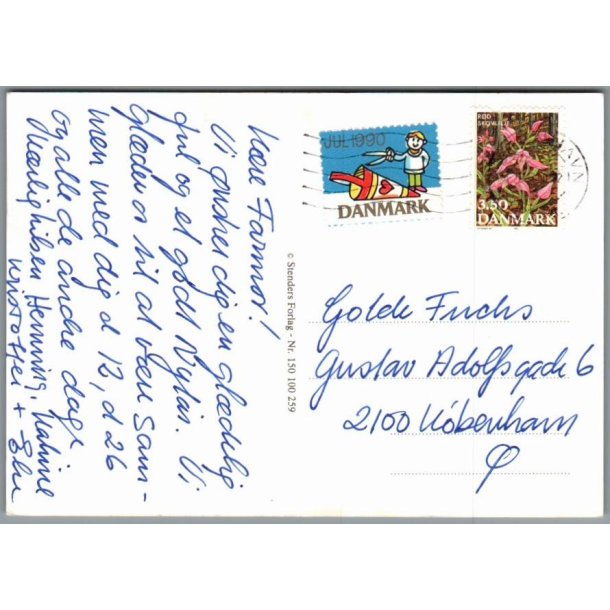 Kære Farmor!
Vi ønsker dig en glædelig
jul og et godt Nytår. Vi
glæder os til at være sam-
men med dig d 12, d 26
og alle de andre dage
Kærlig hilsen Henning, Katrine
Kristoffer +
© Stenders Forlag - Nr. 150 100 259
JUL 1990
DANMARK
RØD
SKOVLILJE
3.50
DANMARK
Golde Fuchs
Gustav Adolfsgade 6
2100 København
Ø